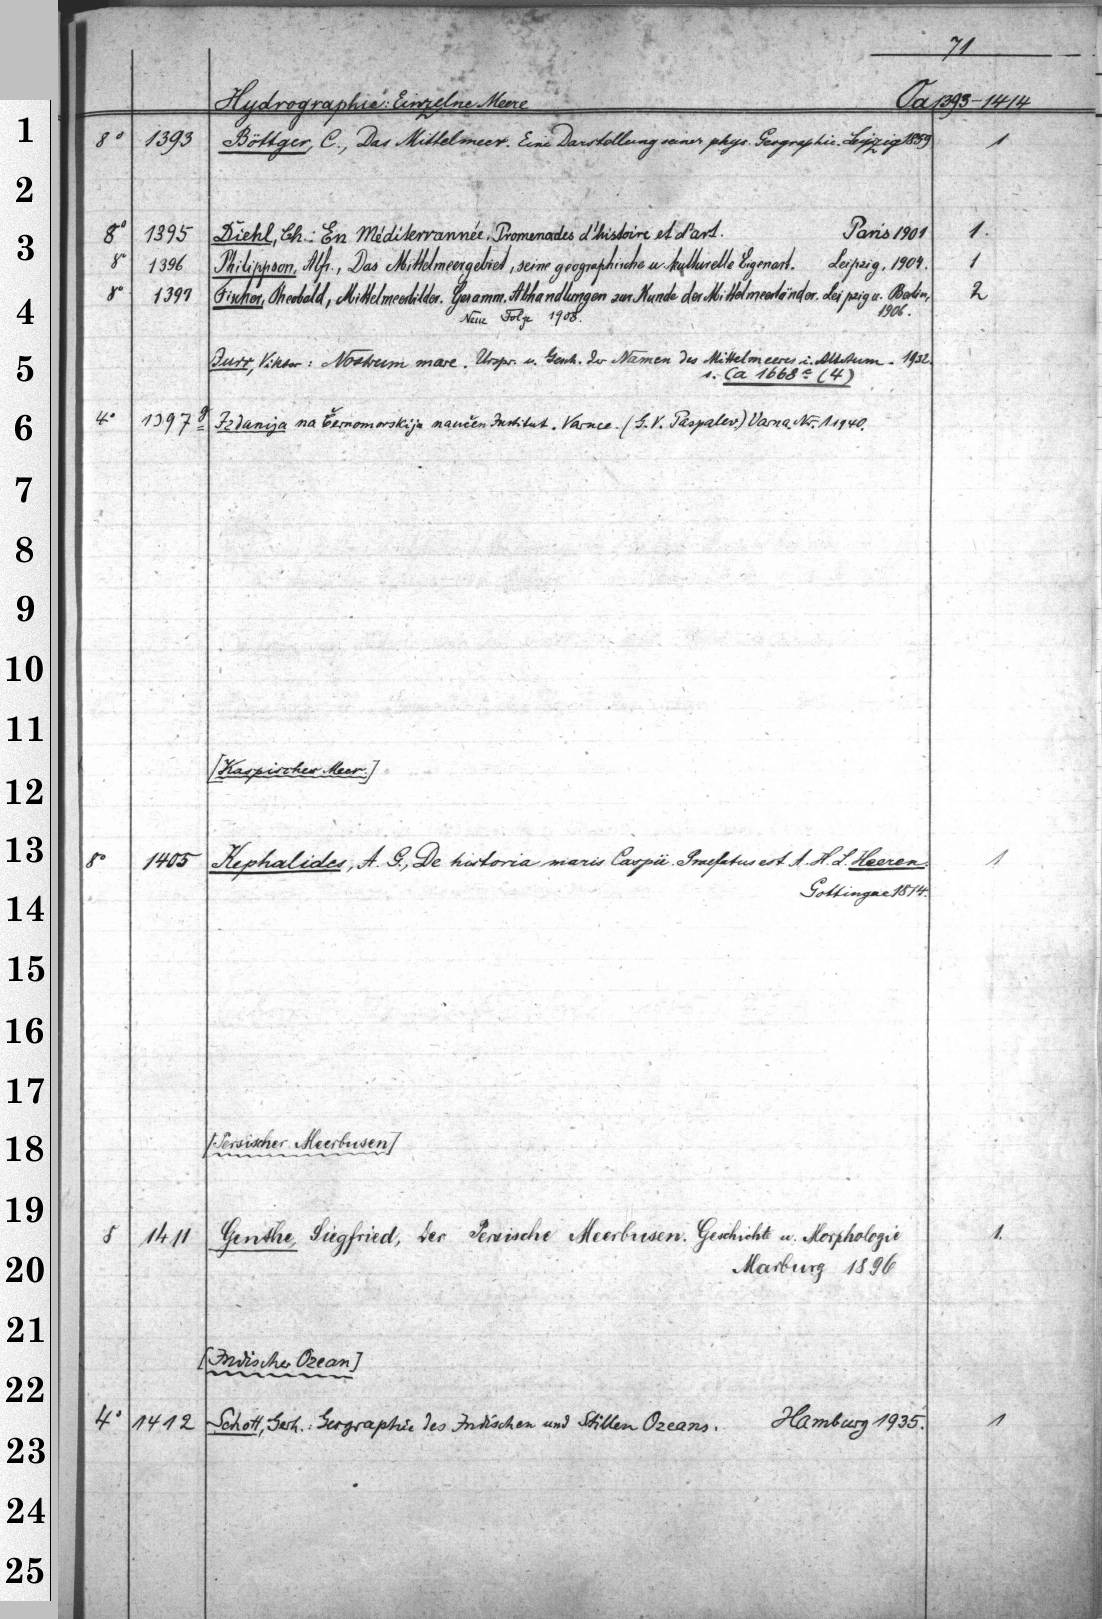 71
Hydrographie: Einzelne Meere Oa 1393-1414
1
8° 1393 Böttger, C., Das Mittelmeer. Eine Darstellung seiner phys. Geographie. Leipzig 1859 1
2
8° 1395 Diehl, Ch.: En Méditerrannée. Promenades d'histoire et d'art. Paris 1901 1.
3
8° 1396 Philippson, Alfr., Das Mittelmeergebiet, seine geographische u. kulturelle Eigenart. Leipzig, 1904. 1
8° 1397 Fischer, Theobald, Mittelmeerbilder. Gesamm. Abhandlungen zur Kunde der Mittelmeerländer. Leipzig u. Berlin, 2
4
1906.
Neue Folge 1908.
5
Burr, Viktor: Nostrum mare. Urspr. u. Gesch. der Namen des Mittelmeeres i. Altertum. 1932.
s. Ca 1668 c (4)
6
4° 1397 g Izdanija na Černomorskija naučen Institut. Varnce. (G. V. Paspalev.) Varna. Nr. 1 1940.
7
8
9
10
11
[Kaspisches Meer.]
12
13
8° 1405 Kephalides, A. G., De historia maris Caspii. Praefatus est A. H. L. Heeren. 1
Gottingae 1814.
14
15
16
17
18
[Persischer Meerbusen]
19
8 1411 Genthe, Siegfried, Der Persische Meerbusen. Geschichte u. Morphologie 1.
Marburg 1896
20
21
[Indischer Ozean]
22
4° 1412 Schott, Gerh.: Geographie des Indischen und Stillen Ozeans. Hamburg 1935. 1
23
24
25